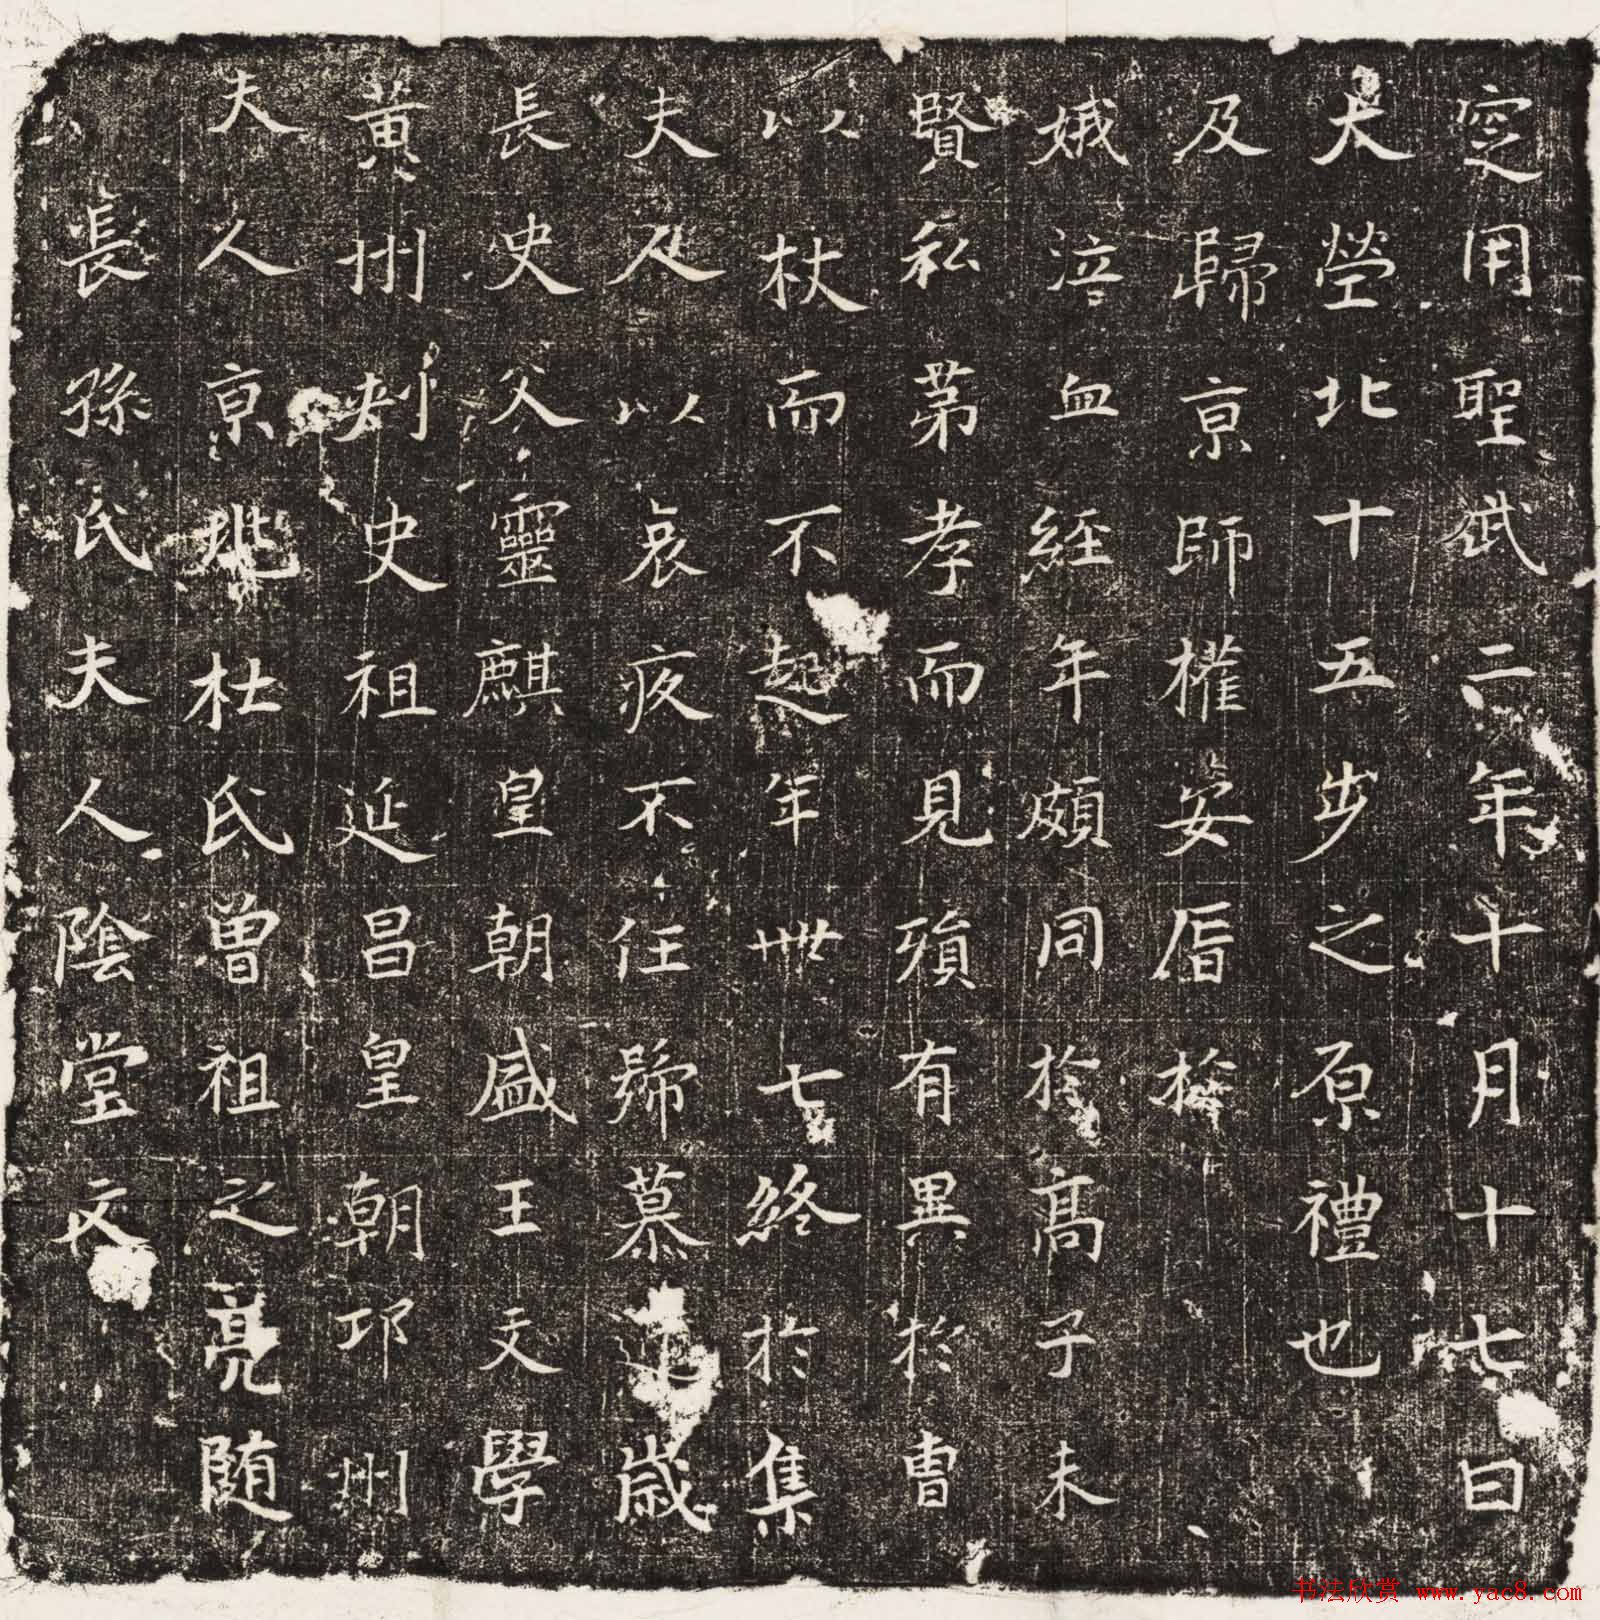 長孫氏夫人陰堂文
夫人京兆杜氏曾祖之亮随
黄州刺史祖延昌皇朝邛州
長史父靈麒皇朝盛王文學
夫人以哀疚不任號慕歲
以杖而不起年卌七終於集
賢私苐孝而見殞有異於曹
娥泣血經年頗同於高子未
及歸京師權安厝於
大塋北十五步之原禮也
窆用聖武二年十月十七日
书法欣赏 www.yac8.com